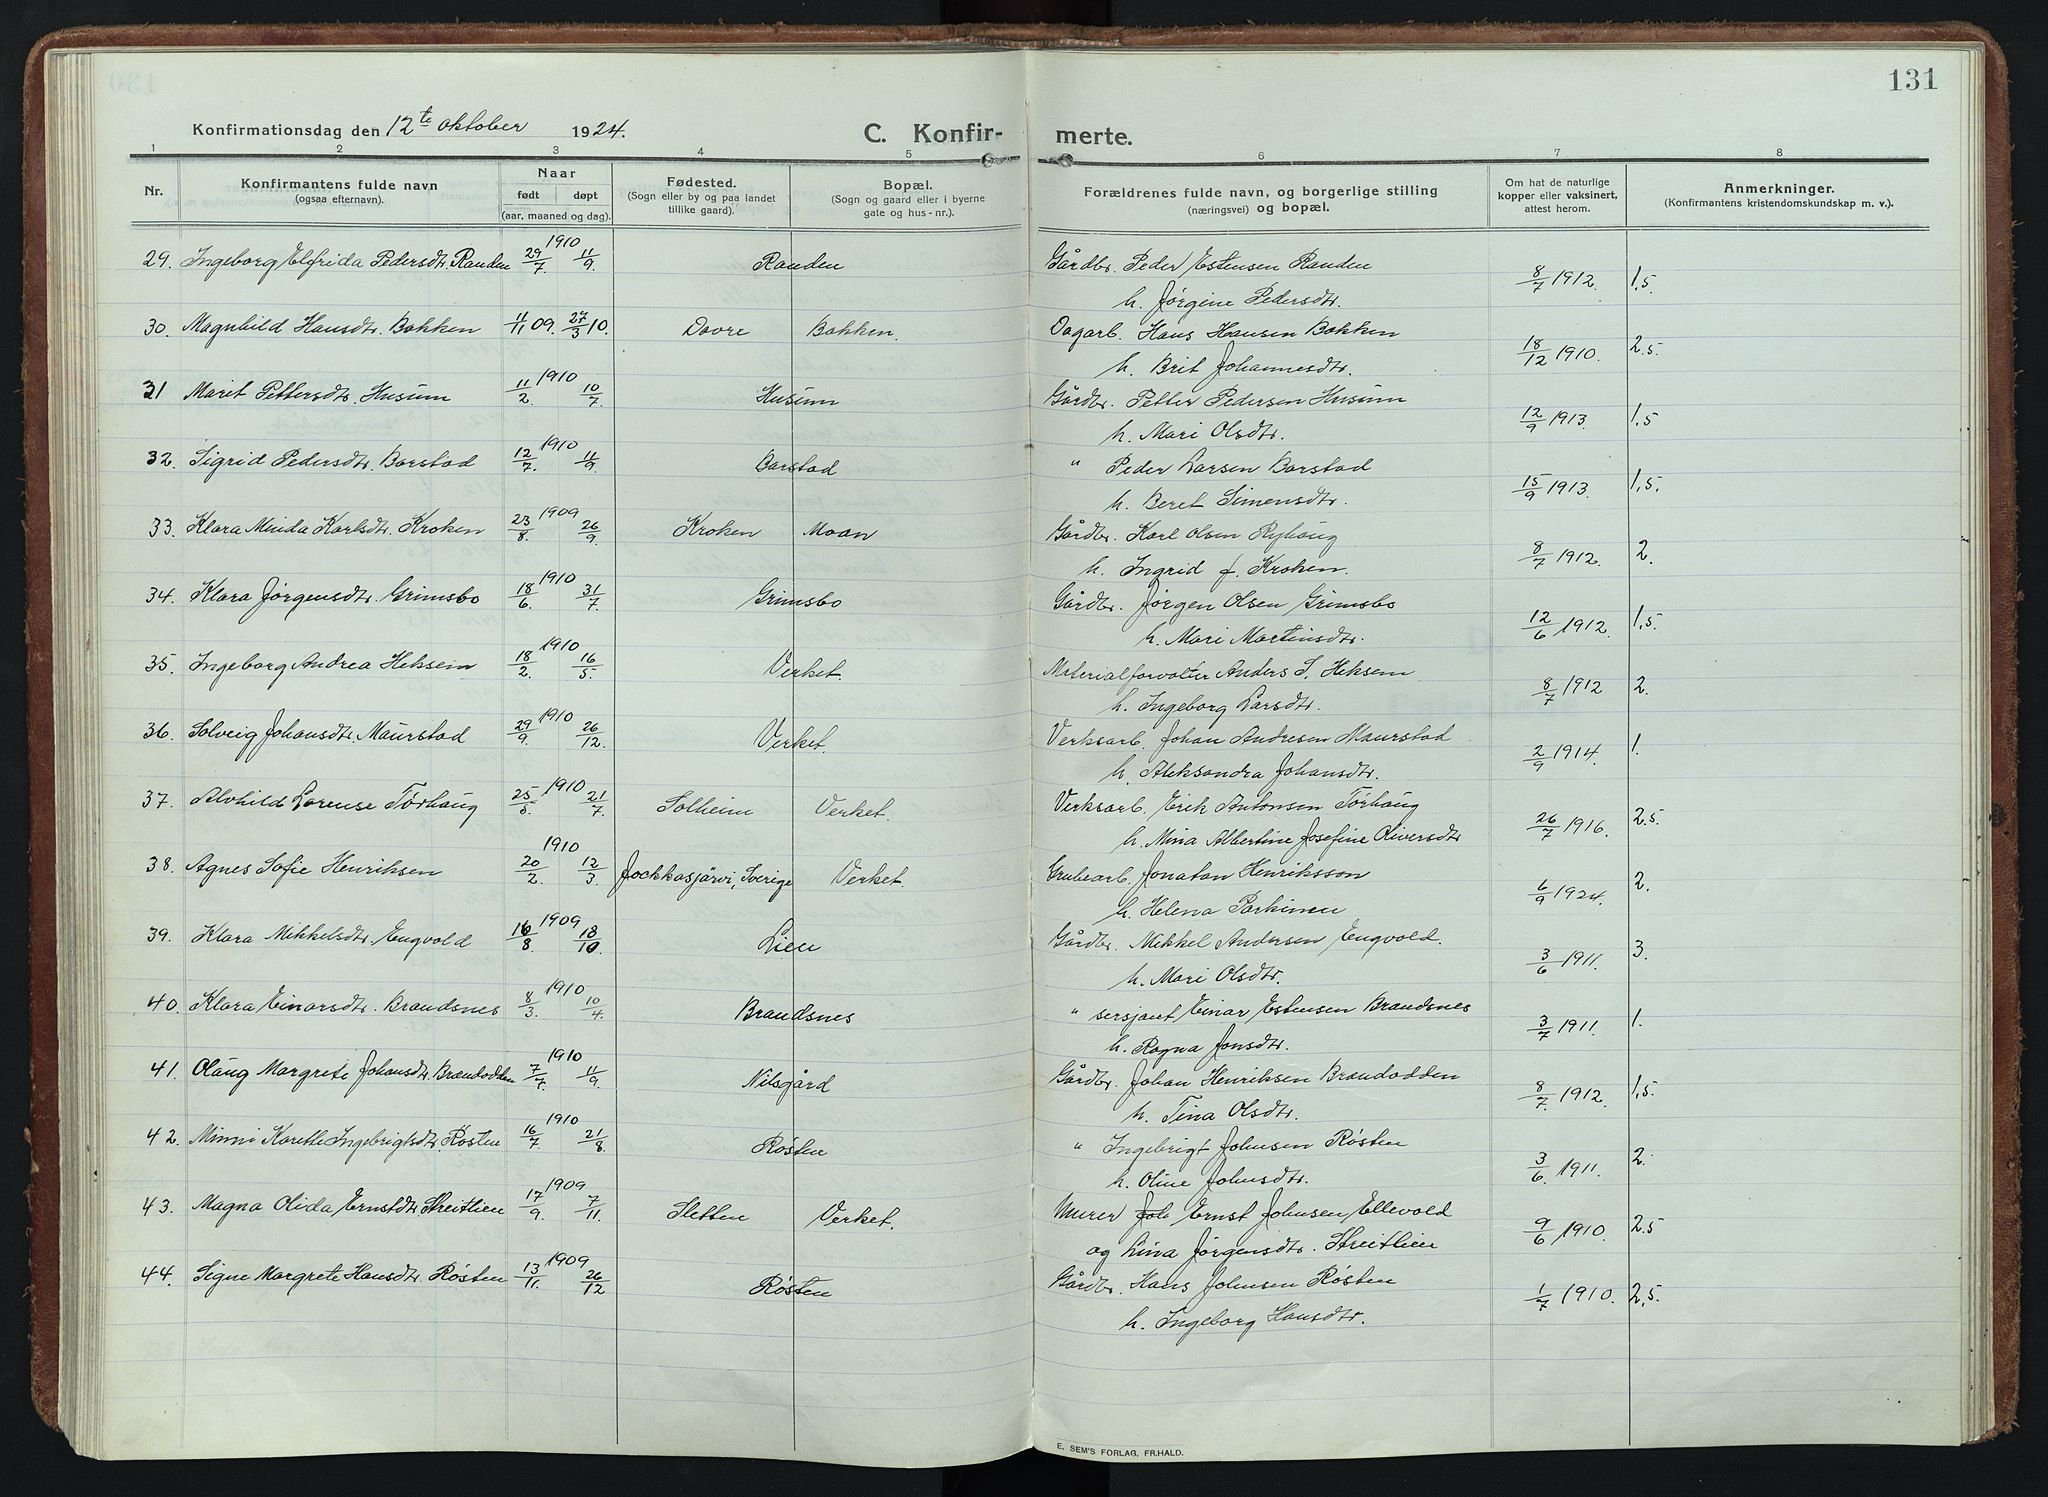 131
Konfirmationsdag den 12te oktober 1924.
C. Konfir- merte.
1 2 3 4 5 6 7 8
Nr. Konfirmantens fulde navn (ogsaa efternavn). Naar født døpt (aar, maaned og dag). Fødested. (Sogn eller by og paa landet tillike gaard). Bopæl. (Sogn og gaard eller i byerne gate og hus-nr.). Forældrenes fulde navn, og borgerlige stilling (næringsvei) og bopæl. Om hat de naturlige kopper eller vaksinert, attest herom. Anmerkninger. (Konfirmantens kristendomskundskap m. v.).
29. Ingeborg Elfrida Pedersdtr. Randen 29/7 1910 11/9 Randen Gårdbr. Peder Estensen Randen 8/7 1912. 1,5.
h. Jørgine Pedersdtr.
30. Magnhild Hansdtr. Bakken 11/11 09. 27/3 10. Dovre Bakken. Dagarb. Hans Hansen Bakken 18/12 1910. 2.5.
h. Brit Johannesdtr.
31 Marit Pettersdtr. Husum 11/2 1910 10/7 Husum Gårdbr. Petter Pedersen Husum 12/9 1913. 1,5
h. Mari Olsdtr.
32. Sigrid Pedersdtr. Barstad 12/7 1910 11/9 Barstad " Peder Larsen Barstad 15/9 1913. 1,5.
h. Beret Simensdtr.
33. Klara Minda Karlsdtr. Kroken 23/8 1909 26/9 Kroken Moan Gårdbr. Karl Olsen Ryhaug 8/7 1912. 2.
h. Ingrid f. Kroken.
34. Klara Jørgensdtr. Grimsbo 18/6 1910 31/7 Grimsbo Gårdbr. Jørgen Olsen Grimsbo 12/6 1912. 1,5.
h. Mari Martinsdtr.
35. Ingeborg Andrea Heksem 18/2 1910 16/5 Verket. Materialforvalter Anders S. Heksem 8/7 1912 2.
h. Ingeborg Larsdtr.
36. Solveig Johansdtr. Maurstad 29/9 1910 26/12 Verket. Verksarb. Johan Andresen Maurstad 2/9 1914. 1.
h. Aleksandra Johansdtr.
37. Alvhild Lorense Tørhaug 25/5 1910 21/7 Solheim Verket. Verksarb. Erik Antonsen Tørhaug 26/7 1916. 2.5.
h. Mina Albertine Josefine Oliversdtr
38. Agnes Sofie Henriksen 20/2 1910 12/3 Jockkasjärvi, Sverige Verket. Grubearb. Jonatan Henriksson 6/9 1924. 2.
h. Helena Parkinen
39. Klara Mikkelsdtr. Engvold 16/8 1909 18/10 Lien Gårdbr. Mikkel Andersen Engvold. 3/6 1911. 3.
h. Mari Olsdtr.
40. Klara Einarsdtr. Brandsnes 8/3 1910 10/4 Brandsnes " sersjant Einar Estensen Brandsnes 3/7 1911. 1.
h. Ragna Jonsdtr.
41. Olaug Margrete Johansdtr. Brandodden 7/7 1910 11/9 Nilsgård Gårdbr. Johan Henriksen Brandodden 8/7 1912. 1,5.
h. Tina Olsdtr.
42. Minni Karette Ingebrigtsdtr. Røsten 16/7 1910 21/8 Røsten " Ingebrigt Johnsen Røsten 3/6 1911. 2.
h. Oline Johnsdtr.
43. Magna Olida Ernstdtr Streitlien 17/9 1909 7/11. Sletten Verket. Murer Joh Ernst Johnsen Ellevold 9/6 1910. 2.5
og Lina Jørgensdtr. Streitlien
44. Signe Margrete Hansdtr. Røsten 13/11. 1909 26/12 Røsten Gårdbr. Hans Johnsen Røsten 1/7 1910. 2,5.
h. Ingeborg Hansdtr.
E. SEM'S FORLAG, FR.HALD.